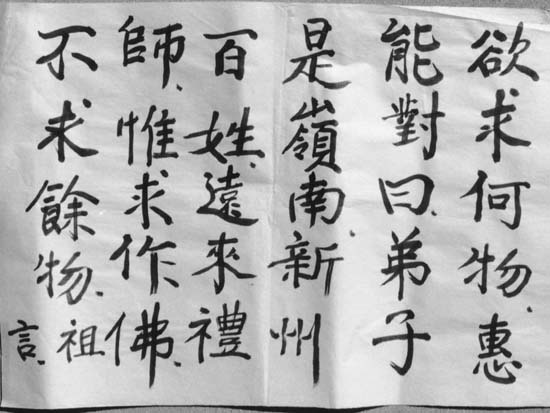 欲求何物、惠
能對曰、弟子
是嶺南新州
百姓、遠來禮
師、惟求作佛、
不求餘物、祖
言、